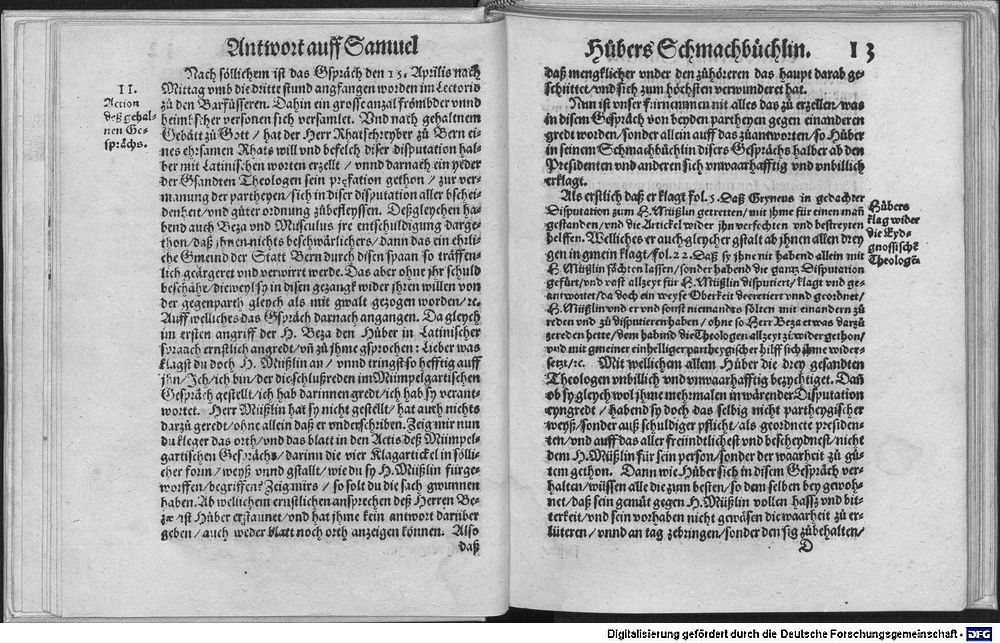 Antwort auff Samuel
Nach söllichem ist das Gspräch den 15. Aprilis nach
Mittag vmb die dritte stund angfangen worden im Lectorio
zů den Barfüsseren. Dahin ein grosse anzal frömbder vnnd
heimbscher personen sich versamlet. Vnd nach gehaltnem
Gebätt zů Gott / hat der Herr Rhatschreyber zů Bern ei-
nes ehrsamen Rhats will vnd befelch diser disputation hal-
ber mit Latinischen worten erzellt / vnnd darnach ein yeder
der Gsandten Theologen sein præfation gethon / zur ver-
manung der partheyen / sich in diser disputation aller bschei-
denheit / vnd gůter ordnung zůbefleyssen. Deßgleychen ha-
bend auch Beza vnd Musculus jre entschuldigung darge-
thon / daß jhnen nichts beschwärlichers / dann das ein ehrli-
che Gmeind der Statt Bern durch disen spaan so träffen-
lich geärgeret vnd verwirrt werde. Das aber ohne jhr schuld
beschähe / dieweyl sy in disen gezangk wider jhren willen von
der gegenparth gleych als mit gwalt gezogen worden / ꝛc.
Auff welliches das Gspräch darnach angangen. Da gleych
im ersten angriff der H. Beza den Hůber in Latinischer
spraach ernstlich angredt / vñ zů jhme gsprochen: Lieber was
klagst du doch H. Müßlin an / vnnd tringst so hefftig auff
jhn / Ich / ich bin / der die schlußreden im Mümpelgartischen
Gespräch gestellt / ich hab darinnen gredt / ich hab sy verant-
wortet. Herr Müßlin hat sy nicht gestellt / hat auch nichts
darzů geredt / ohne allein daß er vnderschriben. Zeig mir nun
du kleger das orth / vnd das blatt in den Actis deß Mümpel-
gartischen Gesprächs / darinn die vier Klagartickel in sölli-
cher form / weyß vnnd gstallt / wie du sy H. Müßlin fürge-
worffen / begriffen? Zeig mirs / so solt du die sach gwunnen
haben. Ab wellichem ernstlichen ansprechen deß Herren Be-
zæ ist Hůber erstaunet / vnd hat jhme kein antwort darüber
geben / auch weder blatt noch orth anzeigen können. Also
daß
II.
Action
deß gehal-
nen Ge-
sprächs.
Hůbers Schmachbüchlin. 13
daß mengklicher vnder den zůhöreren das haupt darab ge-
schüttet / vnd sich zum höchsten verwunderet hat.
Nun ist vnser fürnemmen nit alles das zů erzellen / was
in disem Gespräch von beyden partheyen gegen einanderen
gredt worden / sonder allein auff das zůantworten / so Hůber
in seinem Schmachbüchlin disers Gesprächs halber ab den
Presidenten vnd anderen sich vnwaarhafftig vnd vnbillich
erklagt.
Als erstlich daß er klagt fol. 5. Daß Gryneus in gedachter
Disputation zum H. Müßlin getretten / mit jhme für einen mañ
gestanden / vnd die Artickel wider jhn verfechten vnd bestreyten
helffen. Welliches er auch gleycher gstalt ab jhnen allen drey
gen in gmein klagt / fol. 22. Daß sy jhne nit habend allein mit
H. Müßlin fächten lassen / sonder habend die gantz Disputation
gefürt / vnd vast allzeyt für H. Müßlin disputiert / klagt vnd ge-
antwortet / da doch ein weyse Oberkeit decretiert vnnd geordnet /
H. Müßlin vnd er vnd sonst niemandts sölten mit einandern zů
reden vnd zů disputieren haben / ohne so Herr Beza etwas darzů
zereden hette / dem habind die Theologen allzeyt zů wider gethon /
vnd mit gmeiner einhelliger partheygischer hilff sich jhme wider-
setzt / ꝛc. Mit wellichem allem Hůber die drey gesandten
Theologen vnbillich vnd vnwaarhafftig bezychtiget. Dañ
ob sy gleych wol jhme mehrmalen in wärender Disputation
eyngredt / habend sy doch das selbig nicht partheygischer
weyß / sonder auß schuldiger pflicht / als geordnete presiden-
ten / vnd auff das aller freündtlichest vnd bescheydnest / nicht
dem H. Müßlin für sein person / sonder der waarheit zů gů-
tem gethon. Dann wie Hůber sich in disem Gespräch ver-
halten / wüssen alle die zum besten / so dem selben bey gewoh-
net / daß sein gemüt gegen H. Müßlin vollen hassz vnd bit-
terkeit / vnd sein vorhaben nicht gewäsen die waarheit zů er-
lüteren / vnnd an tag zebringen / sonder den sig zůbehalten /
D
Hůbers
klag wider
die Eyd-
gnossische
Theologẽ
Digitalisierung gefördert durch die Deutsche Forschungsgemeinschaft - DFG